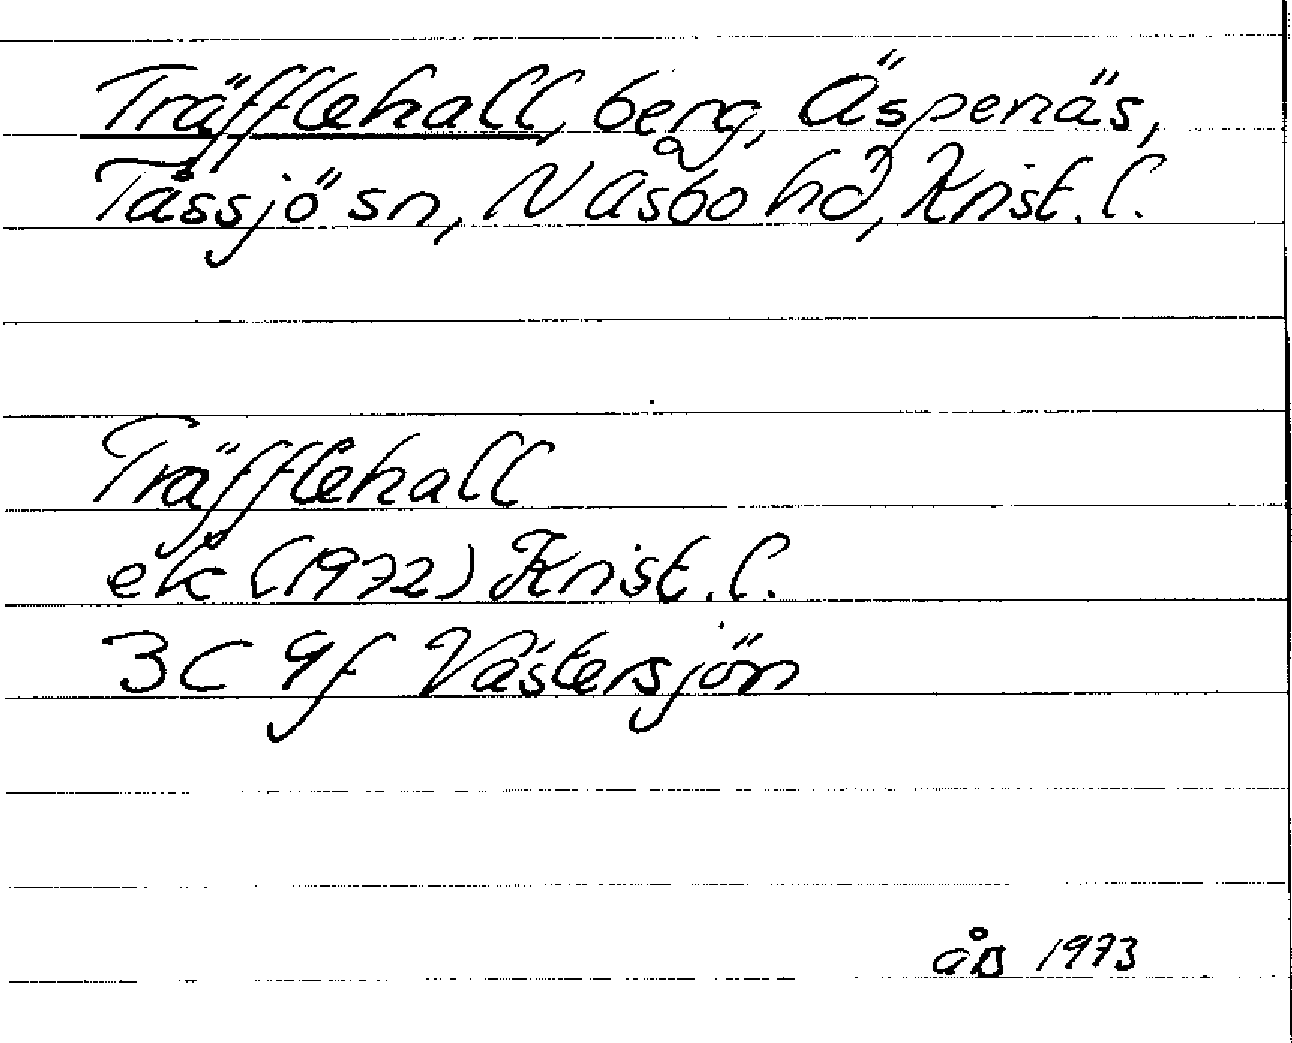 Träfflehall, berg, Äspenäs,
Tåssjö sn, N Åsbo hd, Krist. l.
Träfflehall
ek (1972) Krist. l.
3C 9f Västersjön
åB 1973